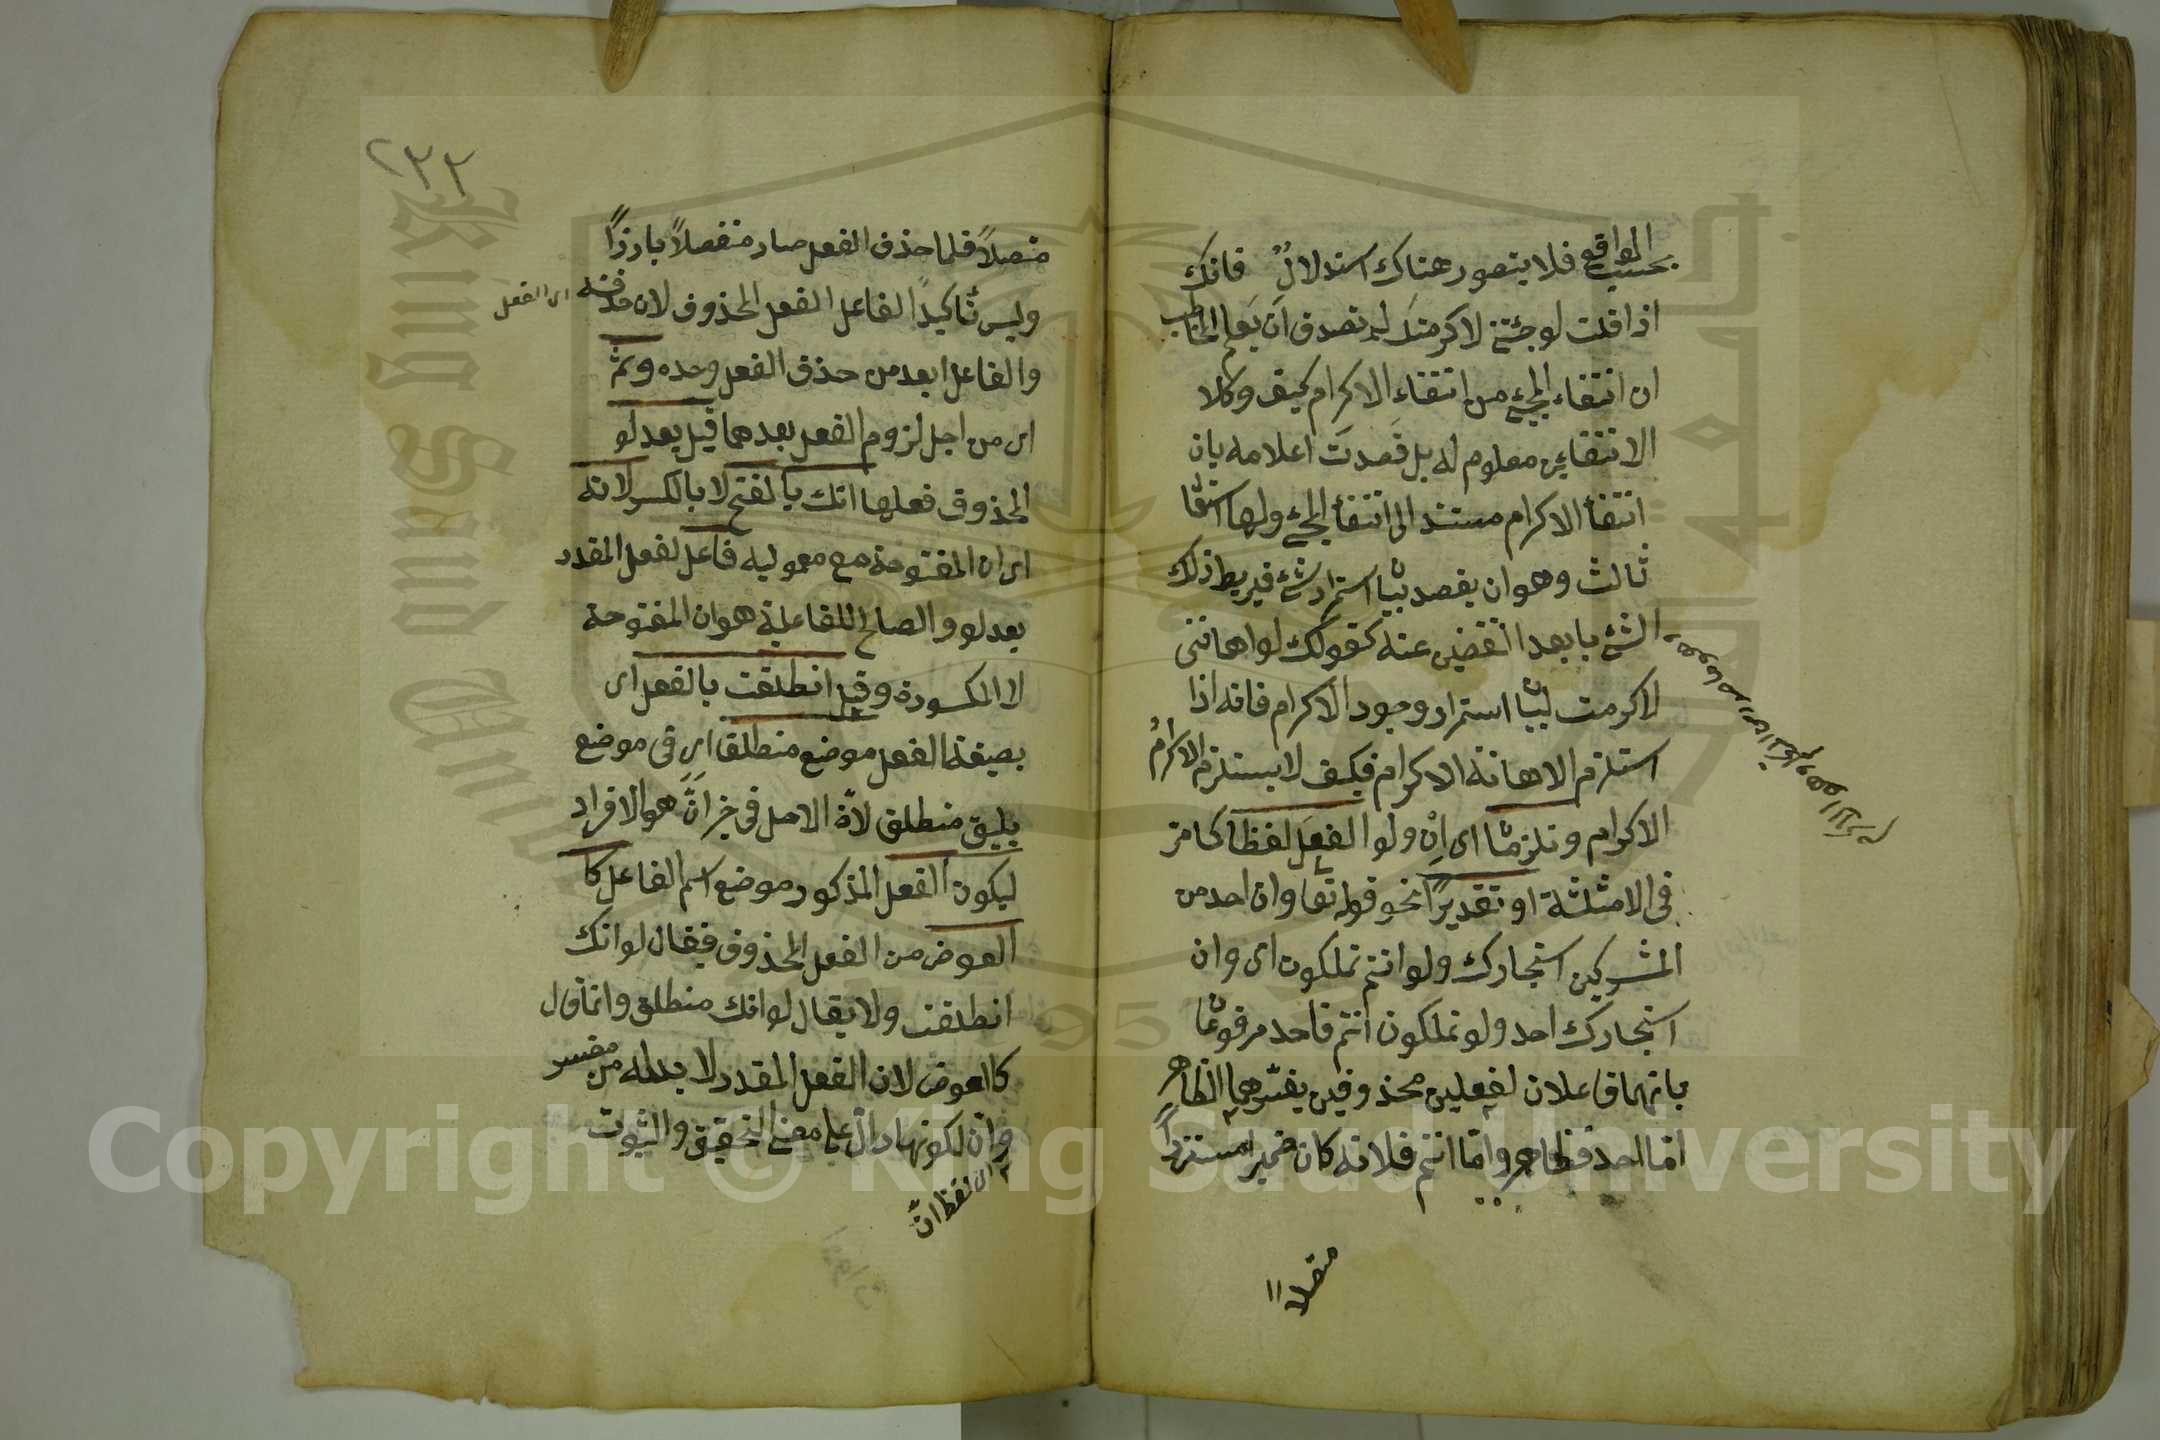 بحسب الواقع فلا يتصور هناك استدلال فانك
اذا قلت لو جئتني لاكرمتك لم تصدق ان يعلم المخاطب
ان انتفاء المجئ من انتفاء الاكرام كيف وكلا
الانتفائين معلوم له بل قصدت اعلامه بان
انتفأ الاكرام مستند الى انتفأ المجئ ولها استعمال
ثالث وهو ان يقصد بيان استمرار شئ فيربط ذلك
الشئ بابعد النقيضين عنه كقولك لو اهاننى
لاكرمت لبيان استمرار وجود الاكرام فانه اذا
استلزم الاهانة الاكرام فكيف لا يستلزم الاكرام
الاكرام وتلزمان اى ان ولو الفعل لفظا كما مر
فى الامثلثة او تقديرا نحو قوله تعا وان احد من
المشركين استجارك ولو انتم تملكون اى وان
استجارك احد ولو تملكون انتم فاحد مرفوعا
بانهما فاعلان لفعلين محذوفين يفسرهما الظاهر
اما احد فظاهر واما انتم فلانه كان ضميرا مستترا
متصلا
٢٣٢
متصلا فلما حذف الفعل صار منفصلا بارزا
وليس تأكيدا الفاعل الفعل المحذوف لان حذفه
اى الفعل
والفاعل ابعد من حذف الفعل وحده وثم
اى من اجل لزوم الفعل بعدهما قيل بعد لو
المحذوف فعلها انك بالفتح لا بالكسر لانه
اى ان المفتوحة مع معموليه فاعل لفعل المقدر
بعد لو والصالح للفاعلية هو ان المفتوحة
لا المكسورة وقيل انطلقت بالفعل اى
بصيغة الفعل موضع منطلق اى فى موضع
يليق منطلق لان الاصل فى خبر ان هو الافراد
ليكون الفعل المذكور موضع اسم الفاعل كا
العوض من الفعل المحذوف فيقال لو انك
انطلقت ولا يقال لو انك منطلق وانما قال
كالعوض لان الفعل المقدر لا بد له من مفسر
وان لكونها دال على معنى التحقيق والثبوت
لفظ ان